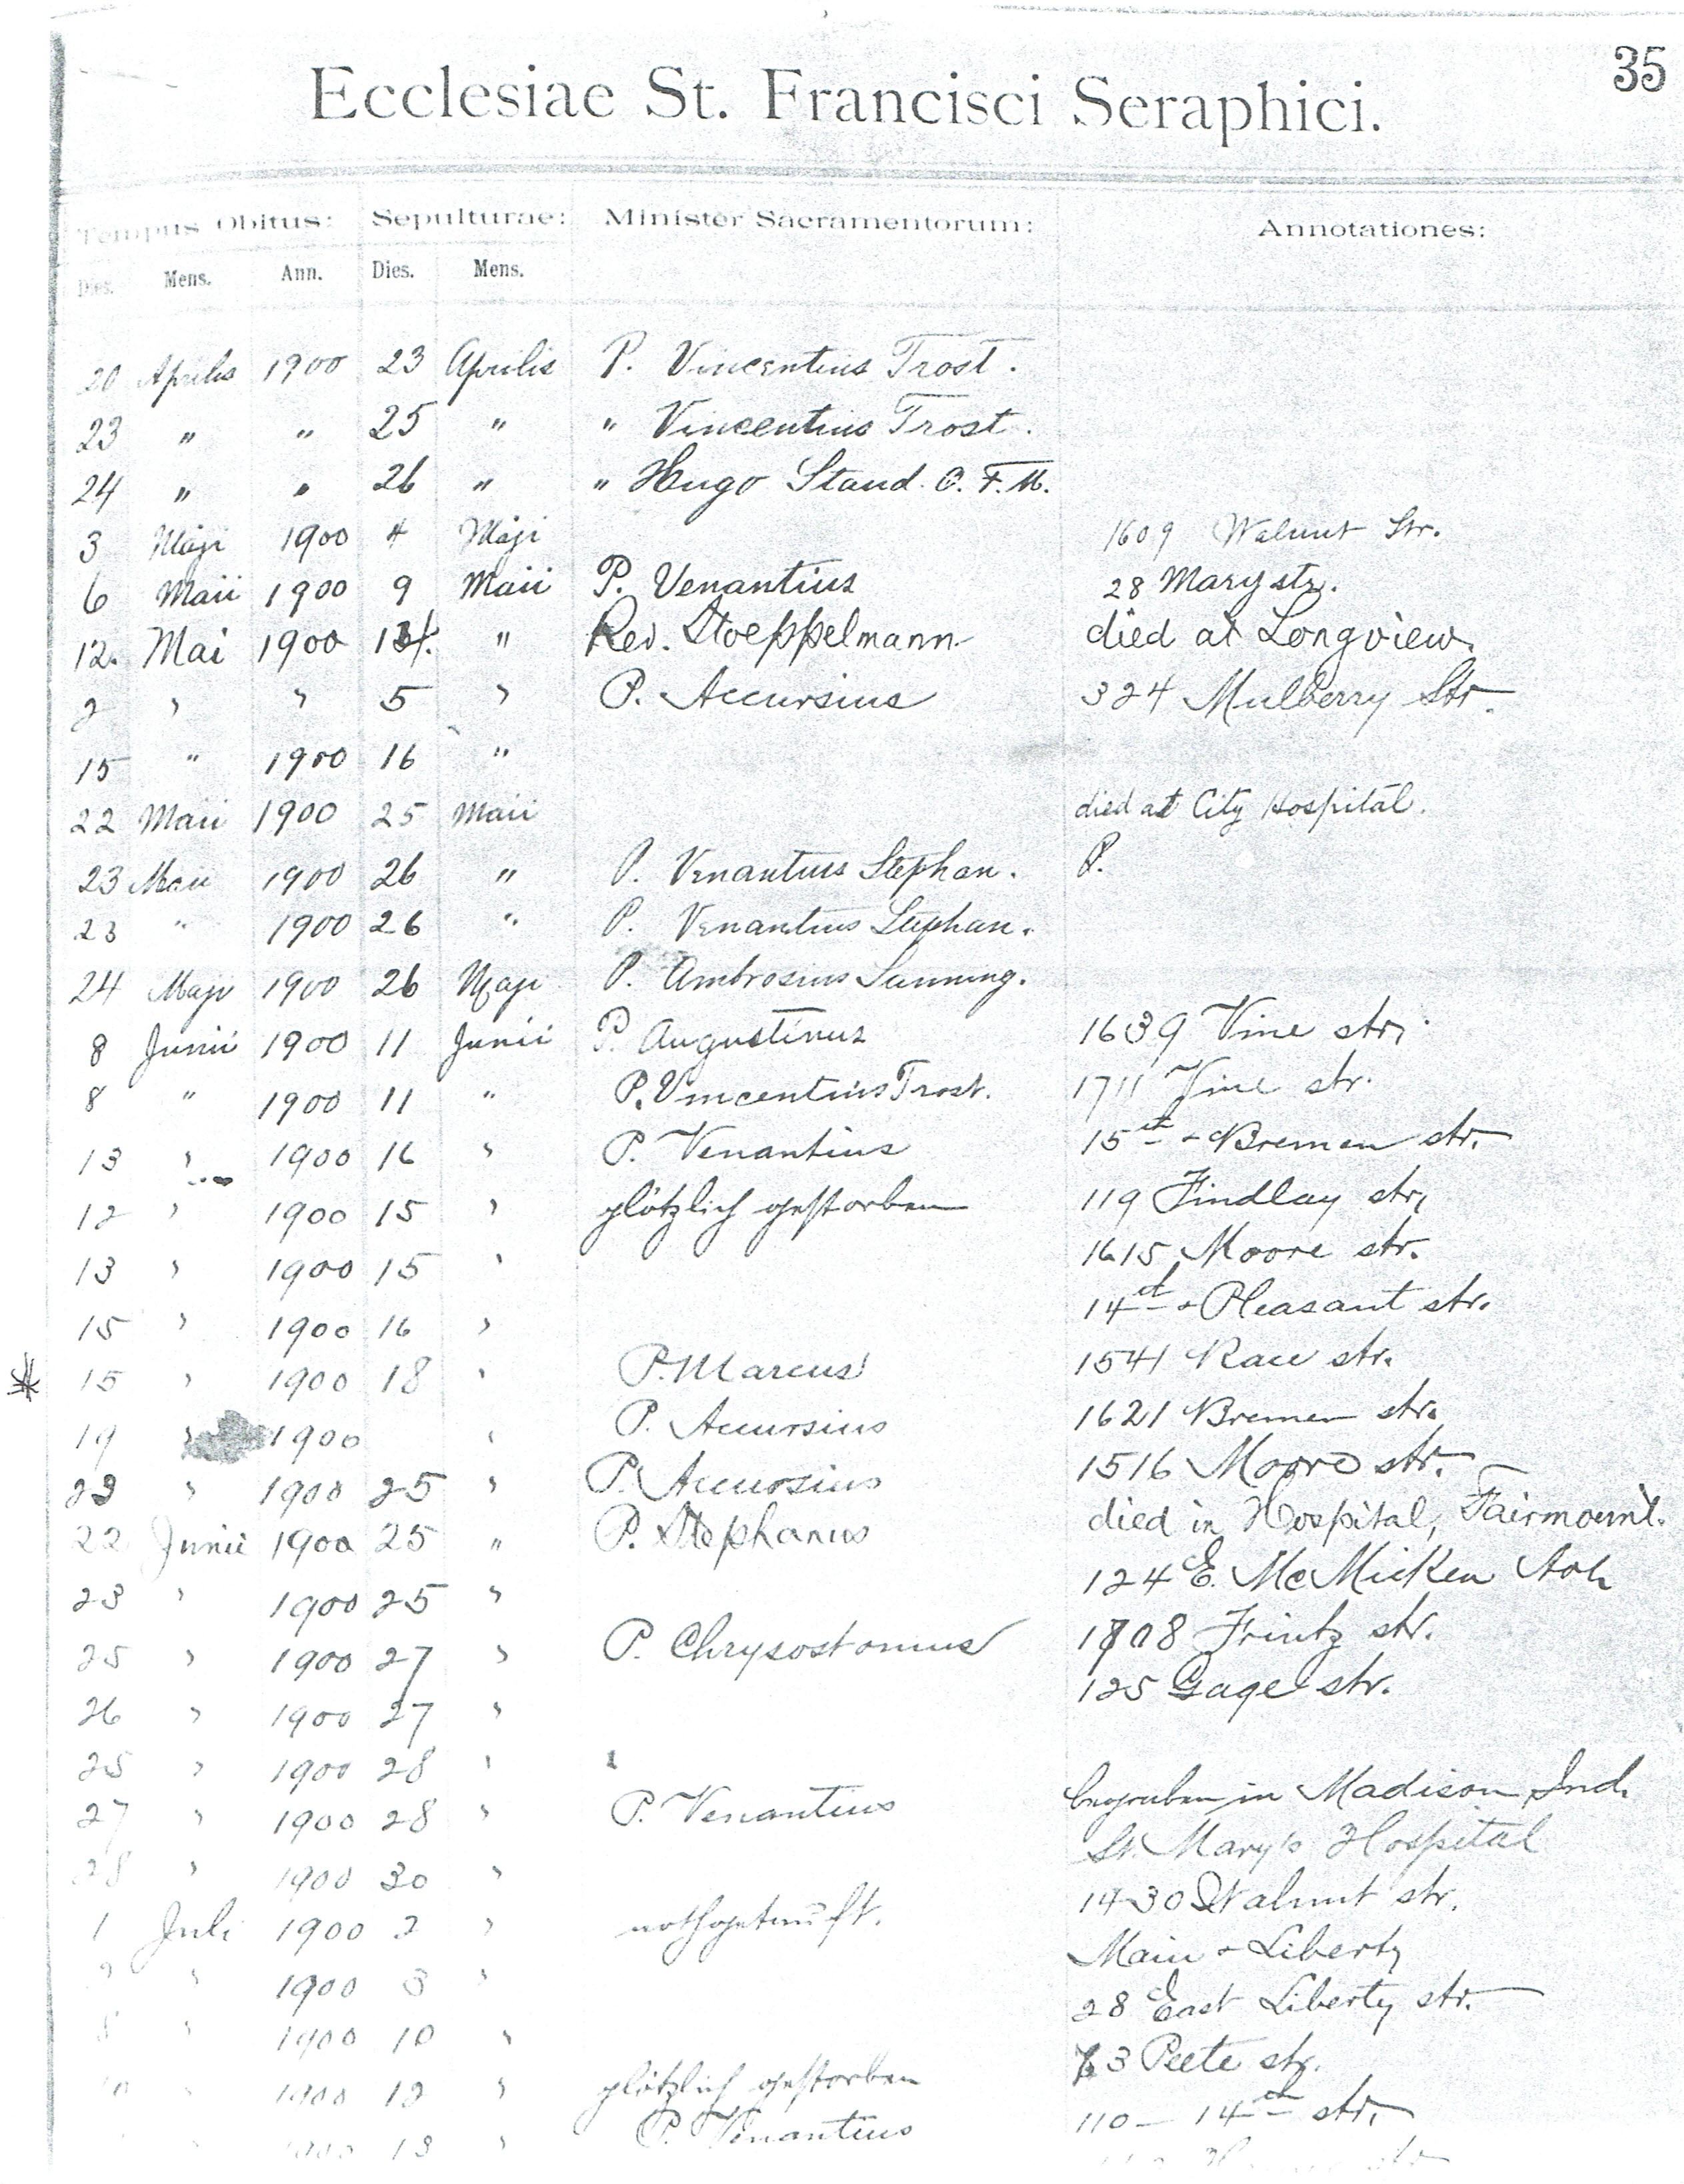 35
Ecclesiae St. Francisci Seraphici.
Tempus Obitus: Sepulturae: Minister Sacramentorum: Annotationes:
Dies. Mens. Ann. Dies. Mens.
20 Aprilis 1900 23 Aprilis P. Vincentius Trost.
23 " " 25 " " Vincentius Trost.
24 " " 26 " " Hugo Staud. O. F. M.
3 Maji 1900 4 Maji 1609 Walnut Str.
6 Maii 1900 9 Maii P. Venantius 28 Mary str.
12. Mai 1900 14. " Rev. Stoeppelmann died at Longview.
2 " " 5 " P. Accursius 324 Mulberry Str.
15 " 1900 16 "
22 Maii 1900 25 Maii died at City Hospital.
23 Maii 1900 26 " P. Venantius Stephan. P.
23 " 1900 26 " P. Venantius Stephan.
24 Maji 1900 26 Maji P. Ambrosius Sanning.
8 Junii 1900 11 Junii P. Augustinus 1639 Vine str.
8 " 1900 11 " P. Vincentius Trost. 1711 Vine str.
13 " 1900 16 " P. Venantius 15th & Bremen str.
12 " 1900 15 " plötzlich gestorben 119 Findlay str.
13 " 1900 15 " 1615 Moore str.
15 " 1900 16 " 14th & Pleasant str.
* 15 " 1900 18 " P. Marcus 1541 Race str.
19 " 1900 " P. Accursius 1621 Bremen str.
23 " 1900 25 " P. Accursius 1516 Moore str.
22 Junii 1900 25 " P. Stephanus died in Hospital, Fairmount.
23 " 1900 25 " 124 E. McMicken Av.
25 " 1900 27 " P. Chrysostomus 1708 Frintz str.
26 " 1900 27 " 125 Gage str.
25 " 1900 28 "
27 " 1900 28 " P. Venantius begraben in Madison Ind.
28 " 1900 30 " St. Mary's Hospital
1 Juli 1900 2 " nothgetauft. 1430 Walnut str.
" 1900 3 " Main & Liberty
8 " 1900 10 " 28 East Liberty str.
10 " 1900 12 " plötzlich gestorben 63 Peete str.
1900 13 " P. Venantius 110 - 14th str.